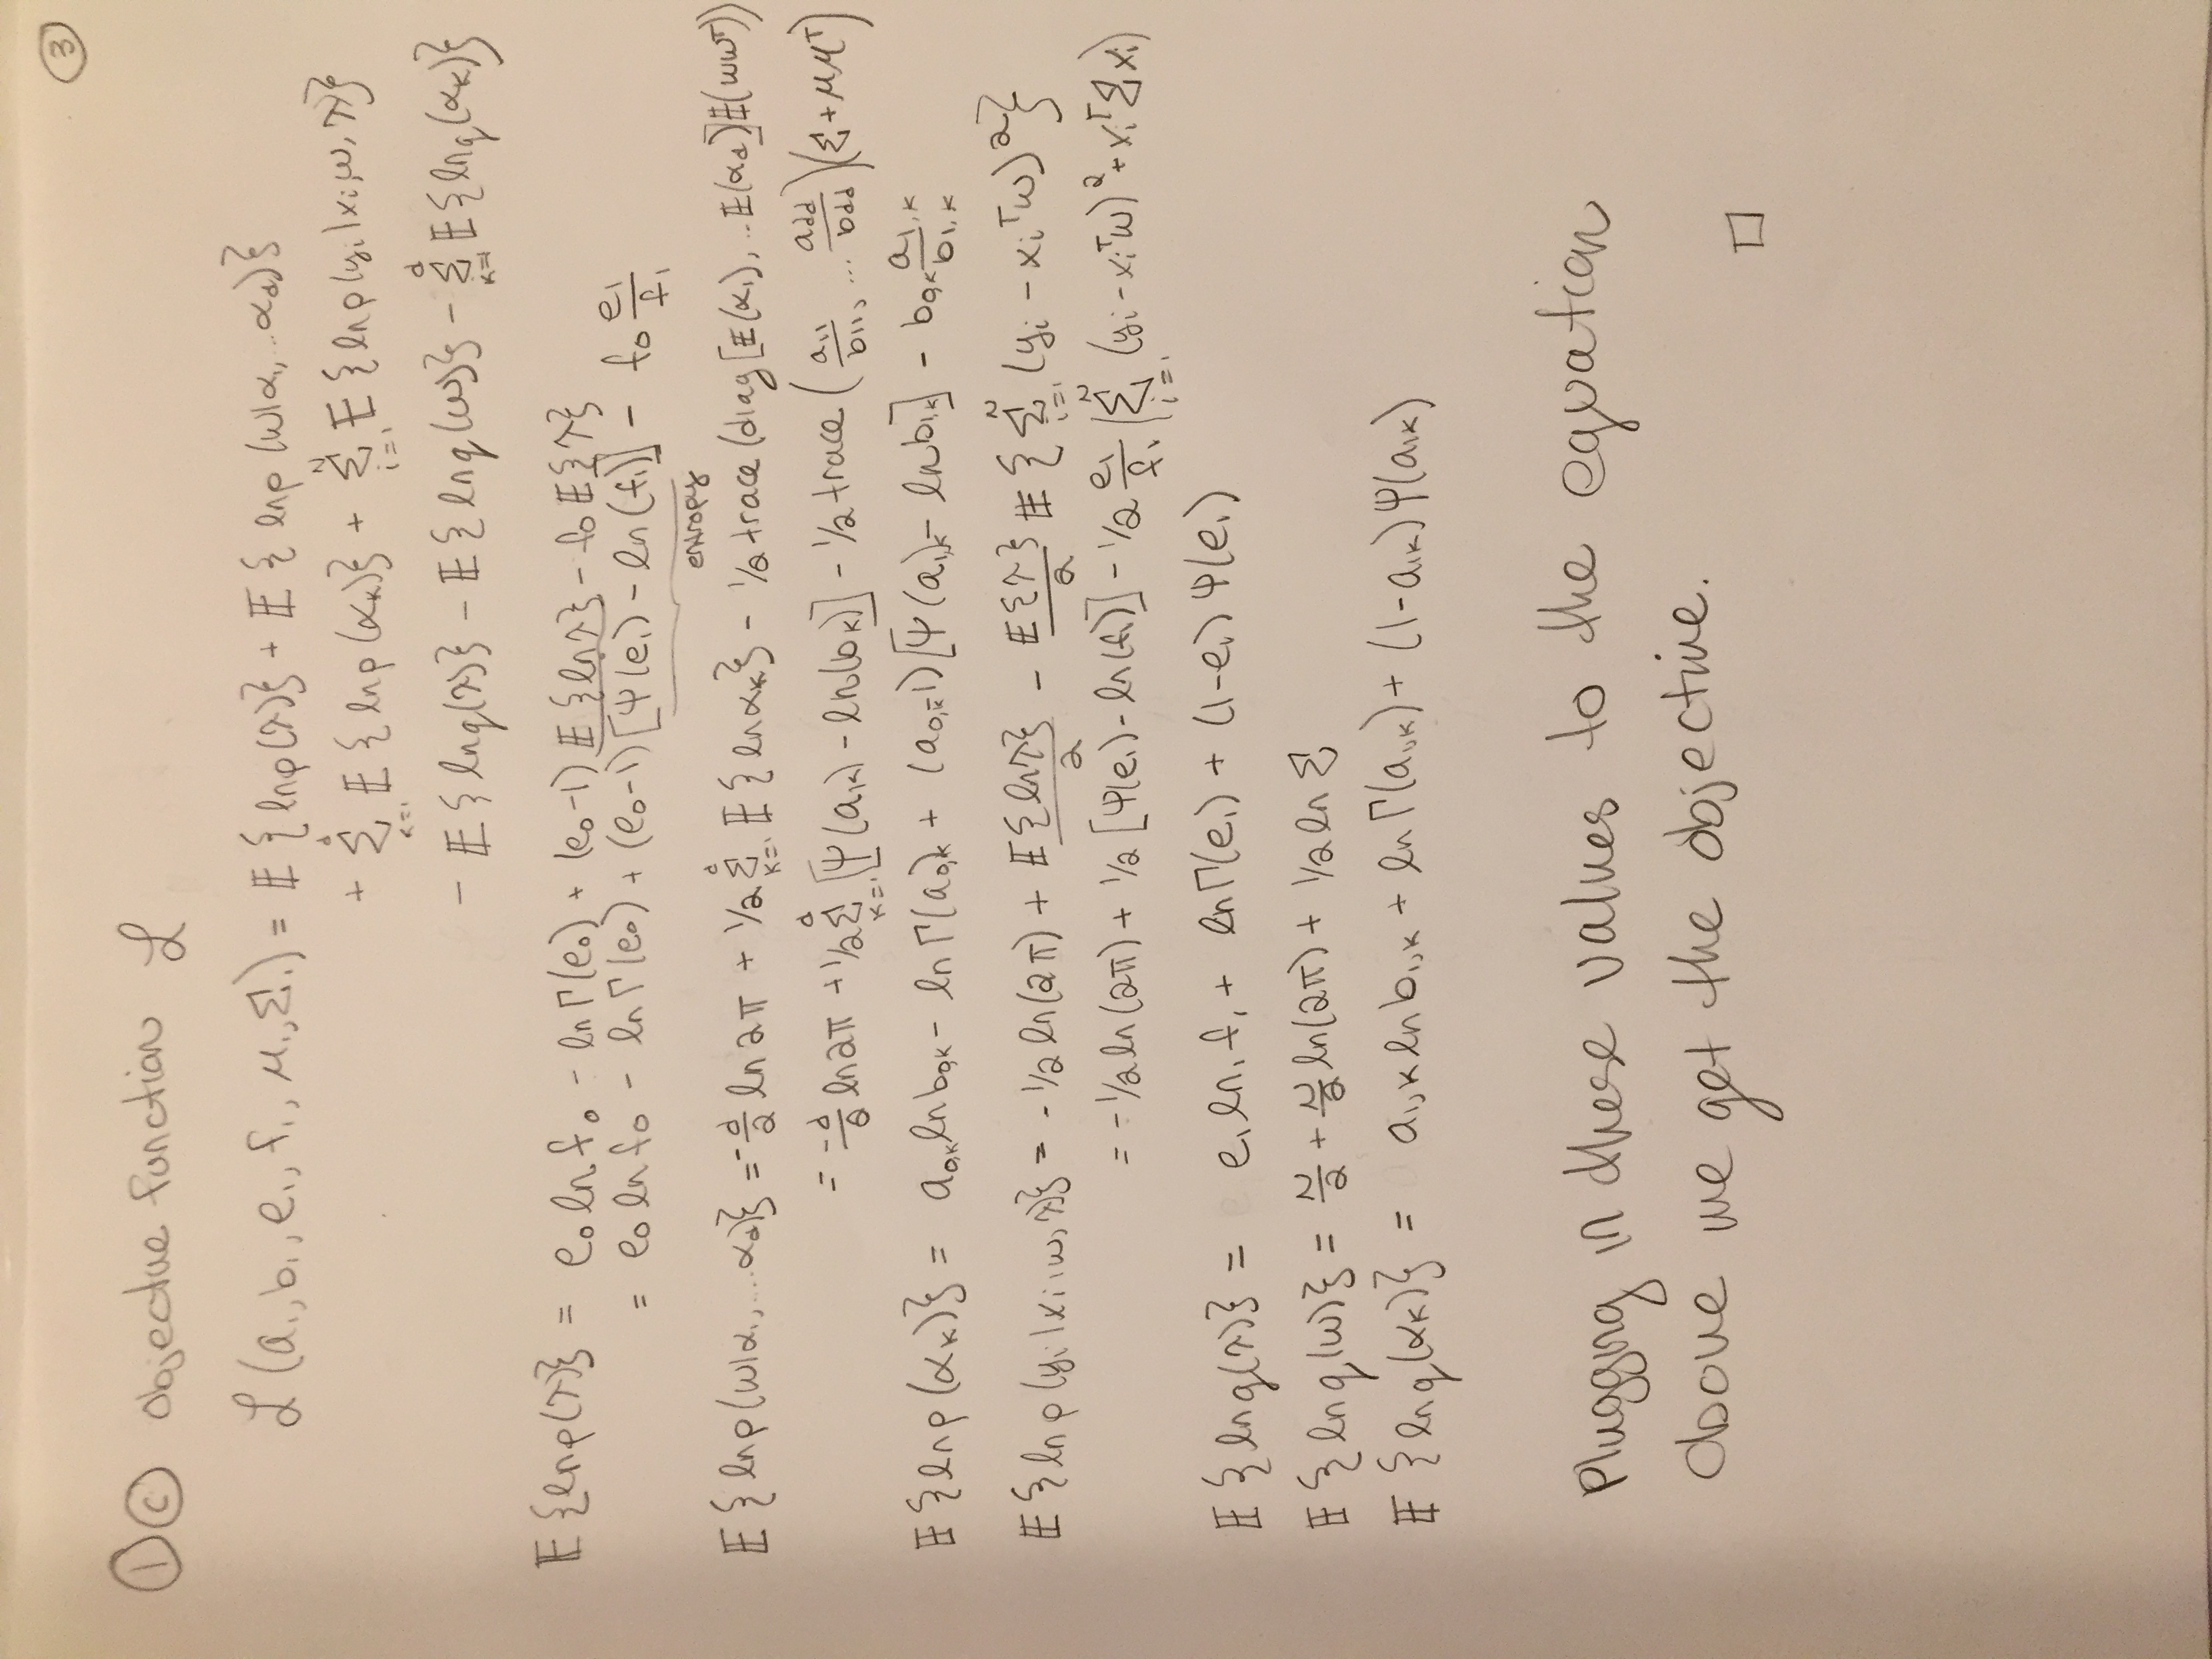 ③
① ⓒ Objective function ℒ
ℒ(a₁, b₁, e₁, f₁, μ₁, Σ₁) = 𝔼{ln p(λ)} + 𝔼{ln p(w|α₁, ... α_d)}
+ Σ_{k=1}^{d} 𝔼{ln p(α_k)} + Σ_{i=1}^{N} 𝔼{ln p(y_i|x_i, w, λ)}
- 𝔼{ln q(λ)} - 𝔼{ln q(w)} - Σ_{k=1}^{d} 𝔼{ln q(α_k)}
𝔼{ln p(λ)} = e₀ ln f₀ - ln Γ(e₀) + (e₀-1) 𝔼{ln λ} - f₀ 𝔼{λ}
= e₀ ln f₀ - ln Γ(e₀) + (e₀-1) [Ψ(e₁) - ln(f₁)] - f₀ e₁/f₁
entropy
𝔼{ln p(w|α₁, ... α_d)} = -d/2 ln 2π + 1/2 Σ_{k=1}^{d} 𝔼{ln α_k} - 1/2 trace(diag[𝔼(α₁), .. 𝔼(α_d]𝔼(ww^T))
= -d/2 ln 2π + 1/2 Σ_{k=1}^{d} [Ψ(a₁k) - ln(b_k)] - 1/2 trace(a₁₁/b₁₁, ... a_dd/b_dd)(Σ + μμ^T)
𝔼{ln p(α_k)} = a₀,k ln b₀,k - ln Γ(a₀)k + (a₀,k-1) [Ψ(a₁)k - ln b₁k] - b₀,k a₁,k/b₁,k
𝔼{ln p(y_i|x_i, w, λ)} = -1/2 ln(2π) + 𝔼{ln λ}/2 - 𝔼{λ}/2 𝔼{Σ_{i=1}^{N} (y_i - x_i^T w)²}
= -1/2 ln(2π) + 1/2 [Ψ(e₁) - ln(f₁)] - 1/2 e₁/f₁ (Σ_{i=1}^{N} (y_i - x_i^T w)² + x_i^T Σ x_i)
𝔼{ln q(λ)} = e₁ ln₁ f₁ + ln Γ(e₁) + (1-e₁) Ψ(e₁)
𝔼{ln q(w)} = N/2 + N/2 ln(2π) + 1/2 ln Σ
𝔼{ln q(α_k)} = a₁,k ln b₁,k + ln Γ(a₁,k) + (1-a₁k) Ψ(a₁k)
Plugging in these values to the equation
above we get the objective.
□